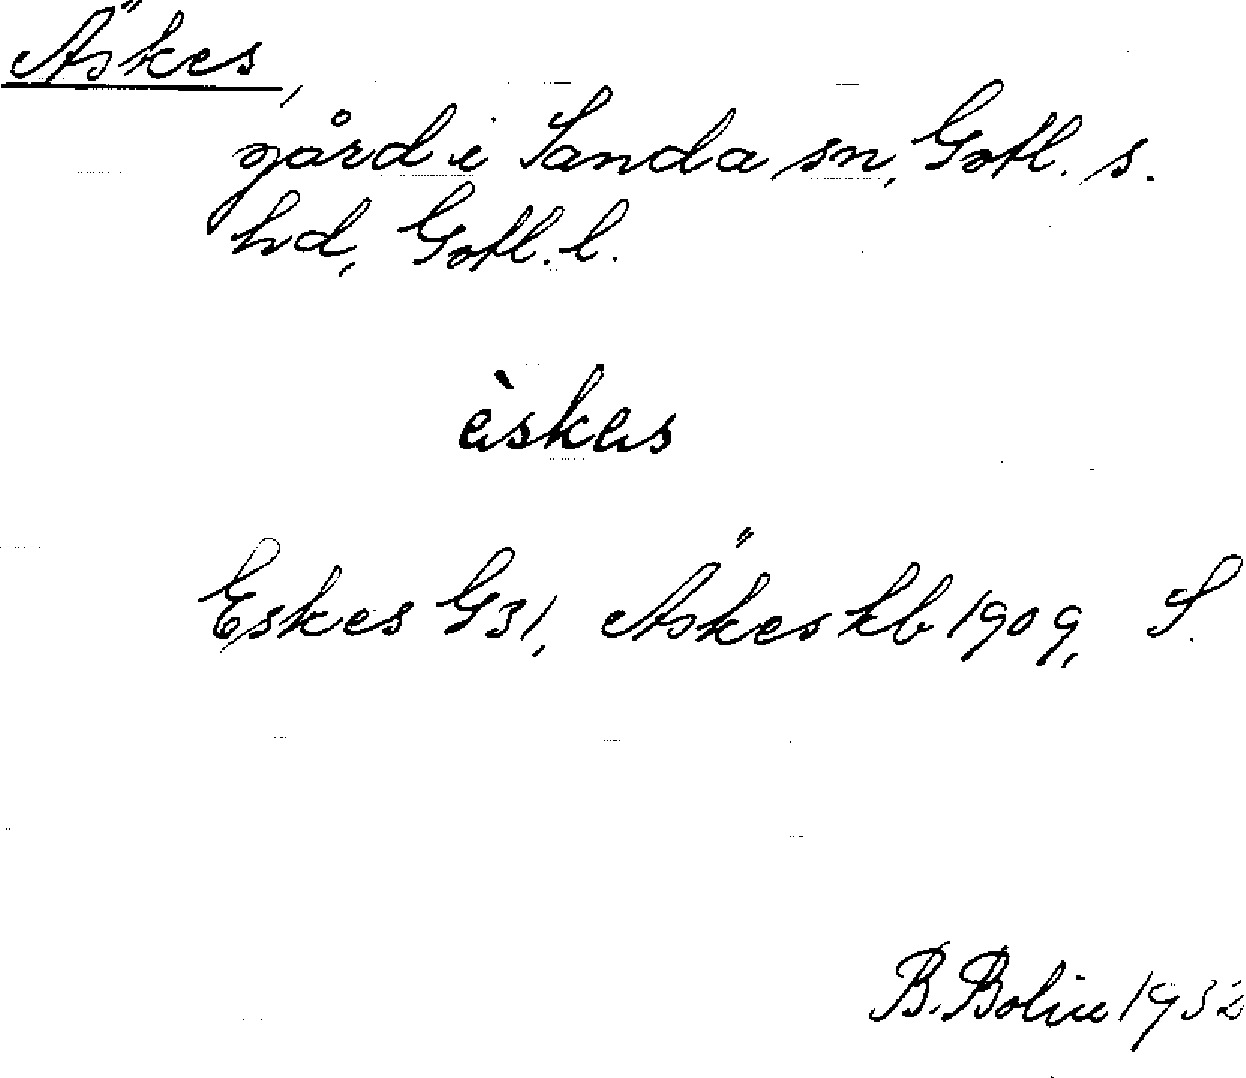 Äskes,
gård i Sanda sn, Gotl. s.
hd, Gotl. l.
èskes
Eskes G31, Äskes kb 1909, S.
B. Bolin 1932